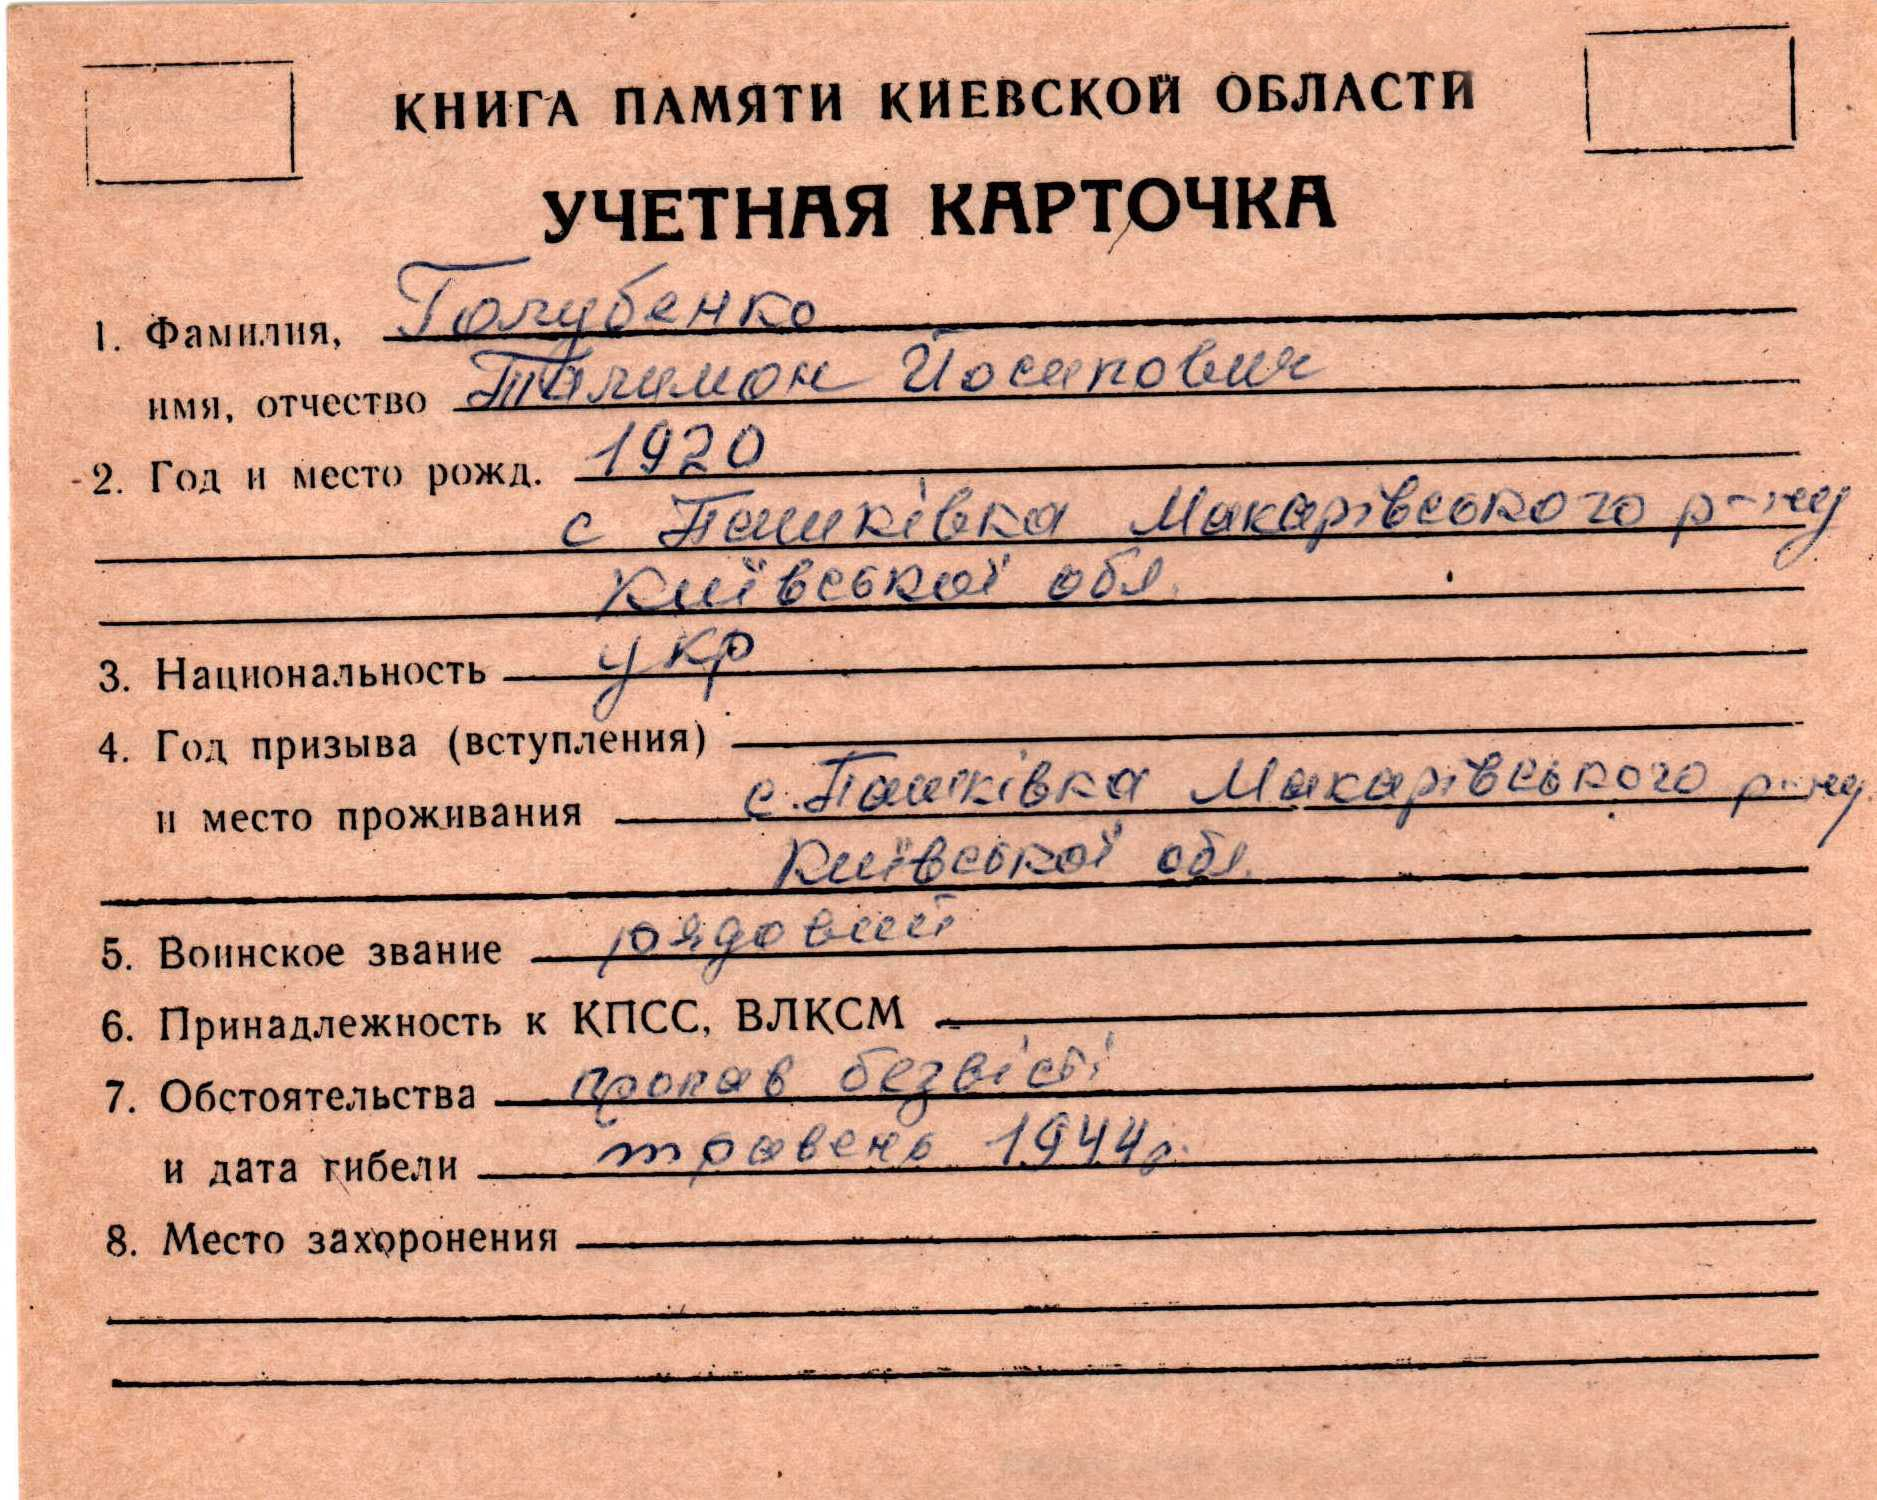 КНИГА ПАМЯТИ КИЕВСКОЙ ОБЛАСТИ
УЧЕТНАЯ КАРТОЧКА
1. Фамилия, Голубенко
имя, отчество Палимон Йосипович
2. Год и место рожд. 1920
с Пашківка Макарівського р-ну
Київської обл.
3. Национальность укр
4. Год призыва (вступления)
и место проживания с. Пашківка Макарівського р-ну
Київської обл.
5. Воинское звание рядовий
6. Принадлежность к КПСС, ВЛКСМ
7. Обстоятельства пропав безвісті
и дата гибели травень 1944р.
8. Место захоронения